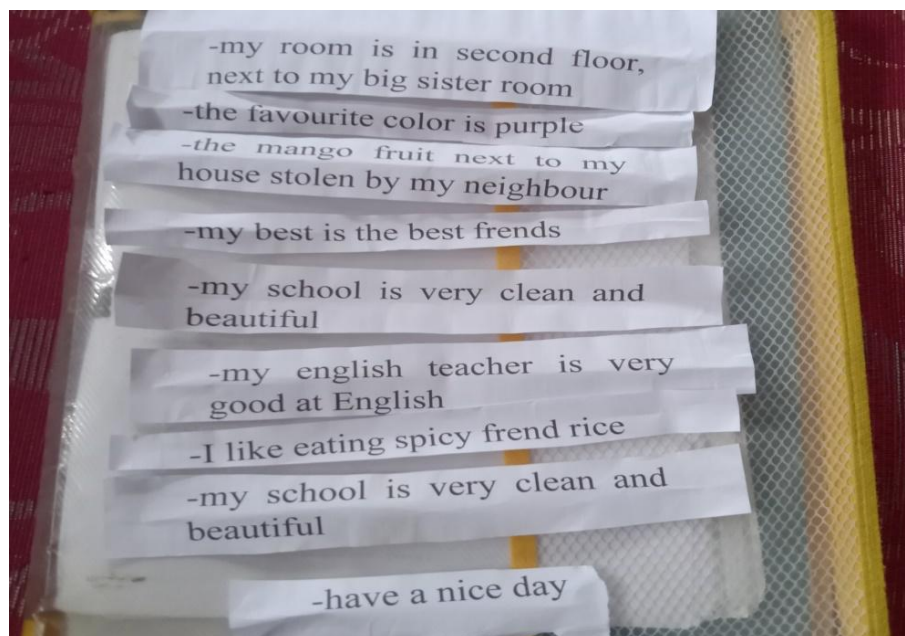 -my room is in second floor,
next to my big sister room
-the favourite color is purple
-the mango fruit next to my
house stolen by my neighbour
-my best is the best frends
-my school is very clean and
beautiful
-my english teacher is very
good at English
-I like eating spicy frend rice
-my school is very clean and
beautiful
-have a nice day